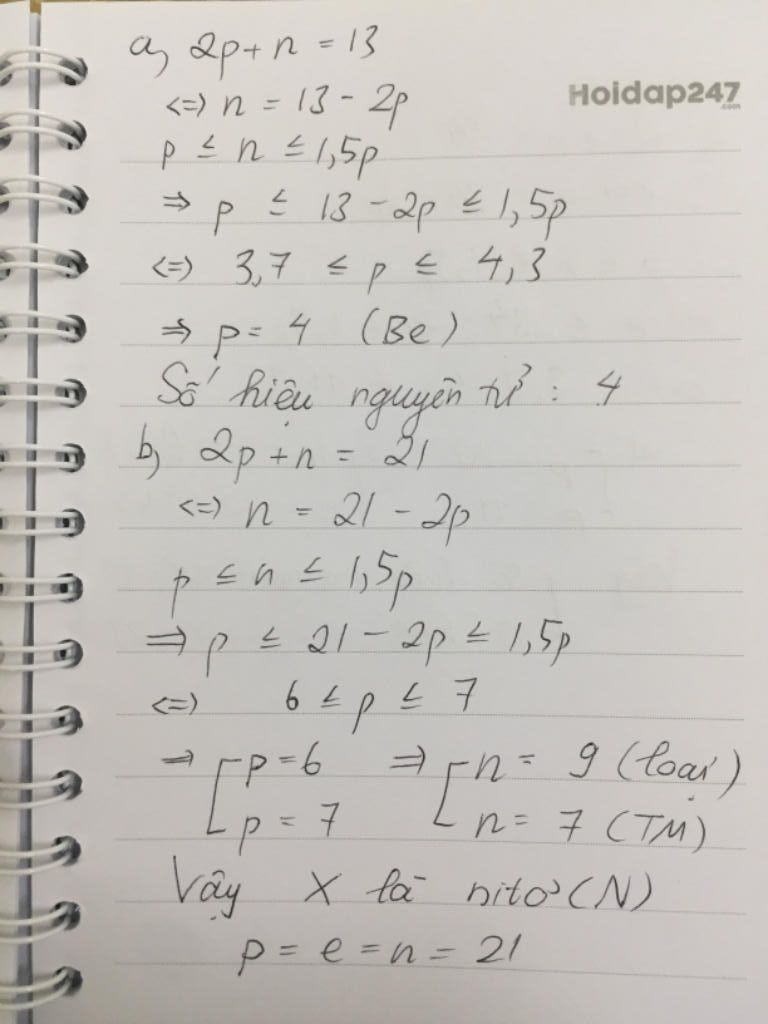 a, 2p + n = 13
Hoidap247
.com
<=> n = 13 - 2p
p ≤ n ≤ 1,5p
=> p ≤ 13 - 2p ≤ 1,5p
<=> 3,7 ≤ p ≤ 4,3
=> p = 4 (Be)
Số hiệu nguyên tử : 4
b, 2p + n = 21
<=> n = 21 - 2p
p ≤ n ≤ 1,5p
=> p ≤ 21 - 2p ≤ 1,5p
<=> 6 ≤ p ≤ 7
=> [ p = 6 => [ n = 9 (loại)
p = 7 n = 7 (TM)
Vậy X là nitơ (N)
p = e = n = 21